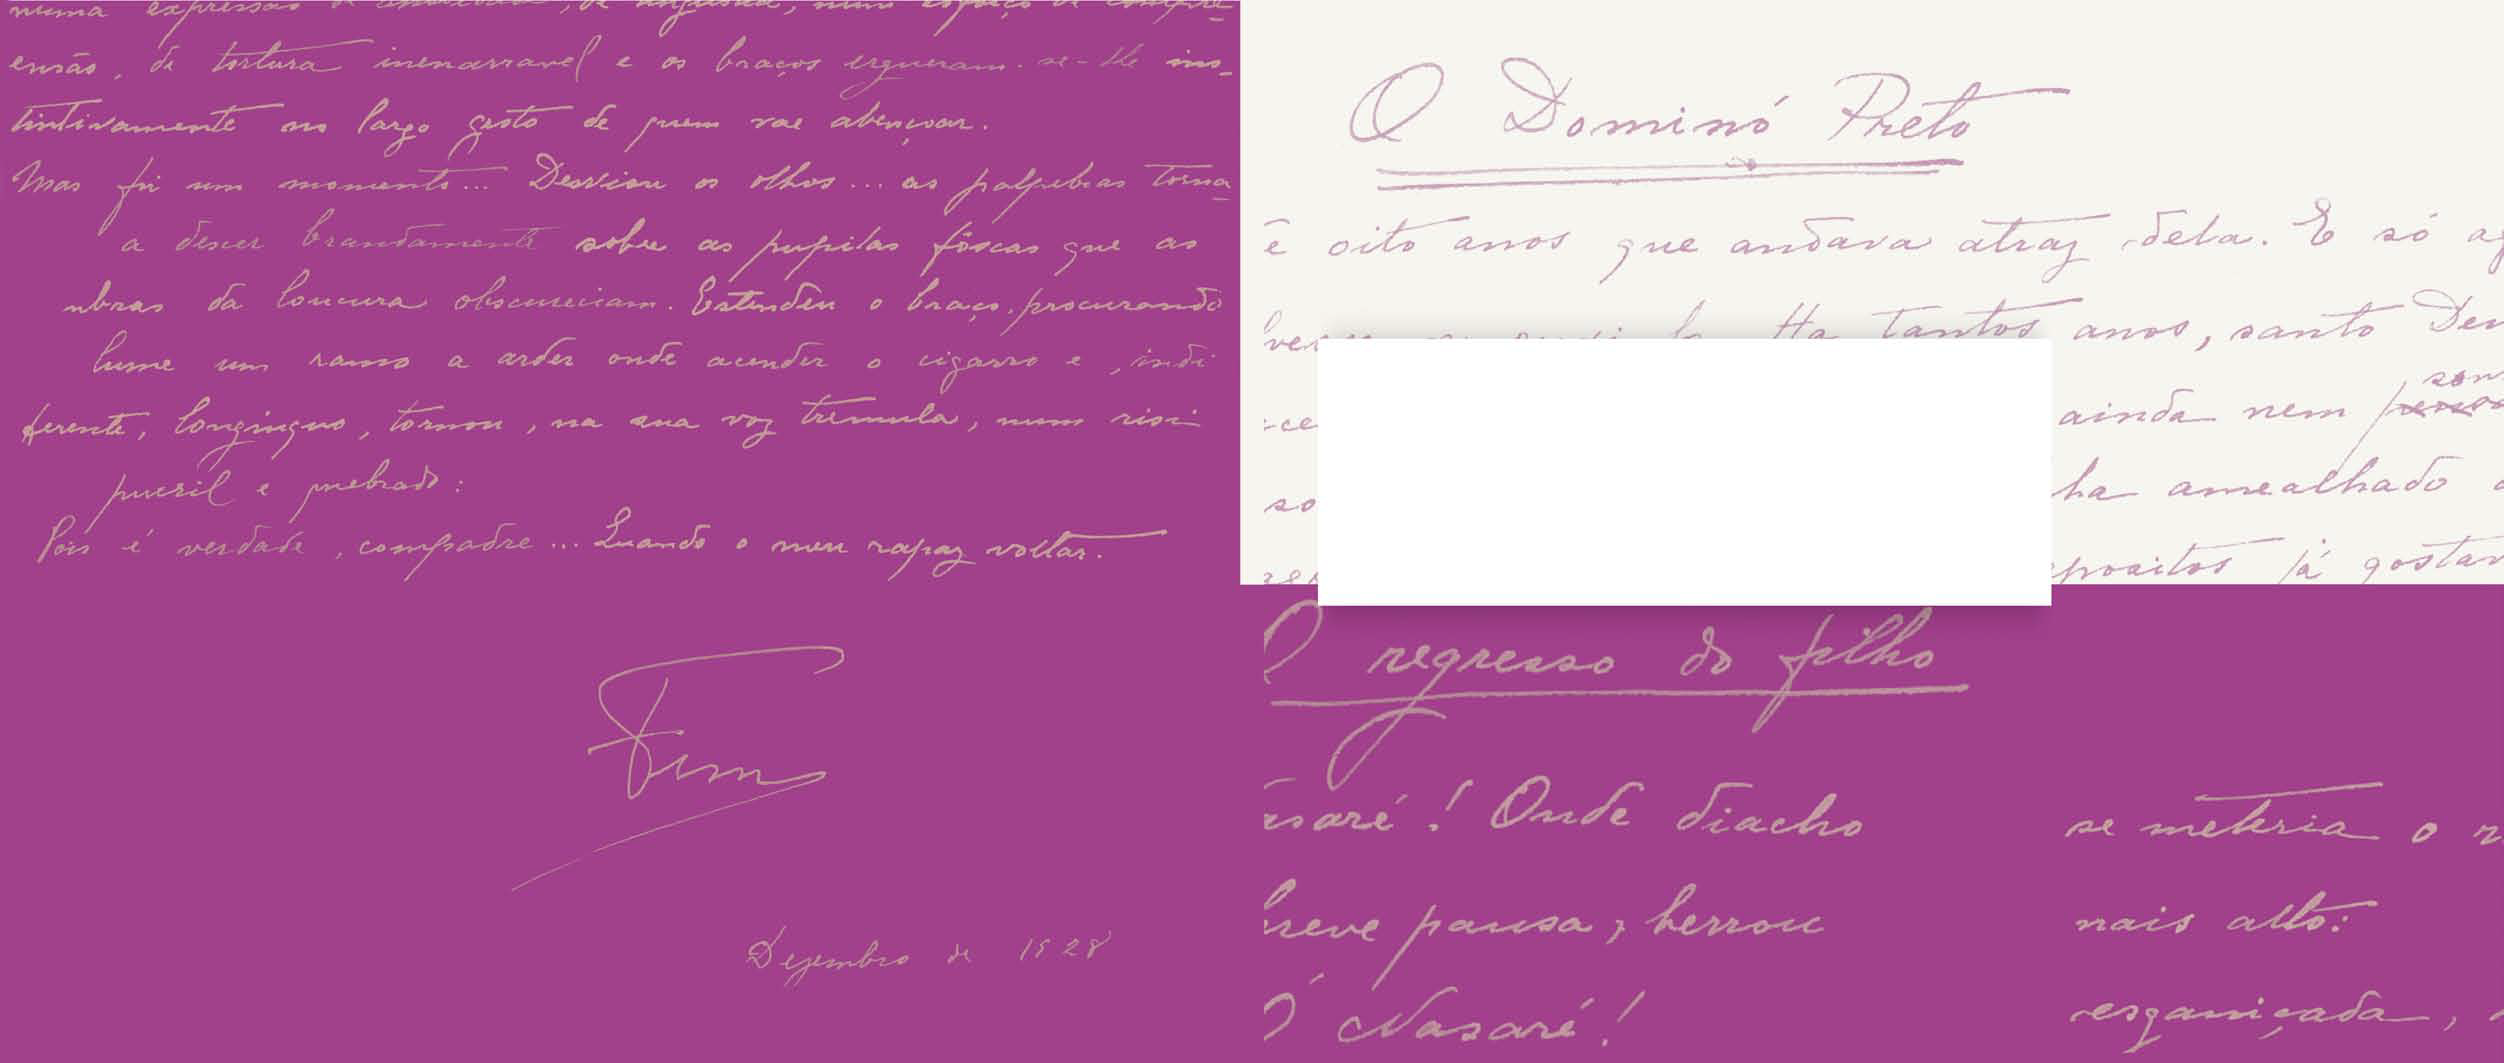 numa expressão de
ensão, de tortura inenarravel e os braços ergueram-se-lhe ins-
tintivamente no largo gesto de quem vae abençoar.
Mas foi um momento... Desviou os olhos... as palpebras torna
a descer brandamente sobre as pupilas fôscas que as
mbras da loucura obscureciam. Estendeu o braço, procurando
lume um ramo a arder onde acender o cigarro e, indi
ferente, longinquo, tornou, na sua voz tremula, num risi-
pueril e quebrado:
Pois é verdade, compadre... Quando o meu rapaz voltar.
Fim
Dezembro de 1928
O Dominó Preto
e oito anos que andava atraz dela. E só
Ha tantos anos, santo Deu
ainda nem
so ha amealhado
já gostan
O regresso do filho
asaré! Onde diacho se meteria o r
breve pausa, berrou mais alto:
Ó Nasaré! esganiçada,